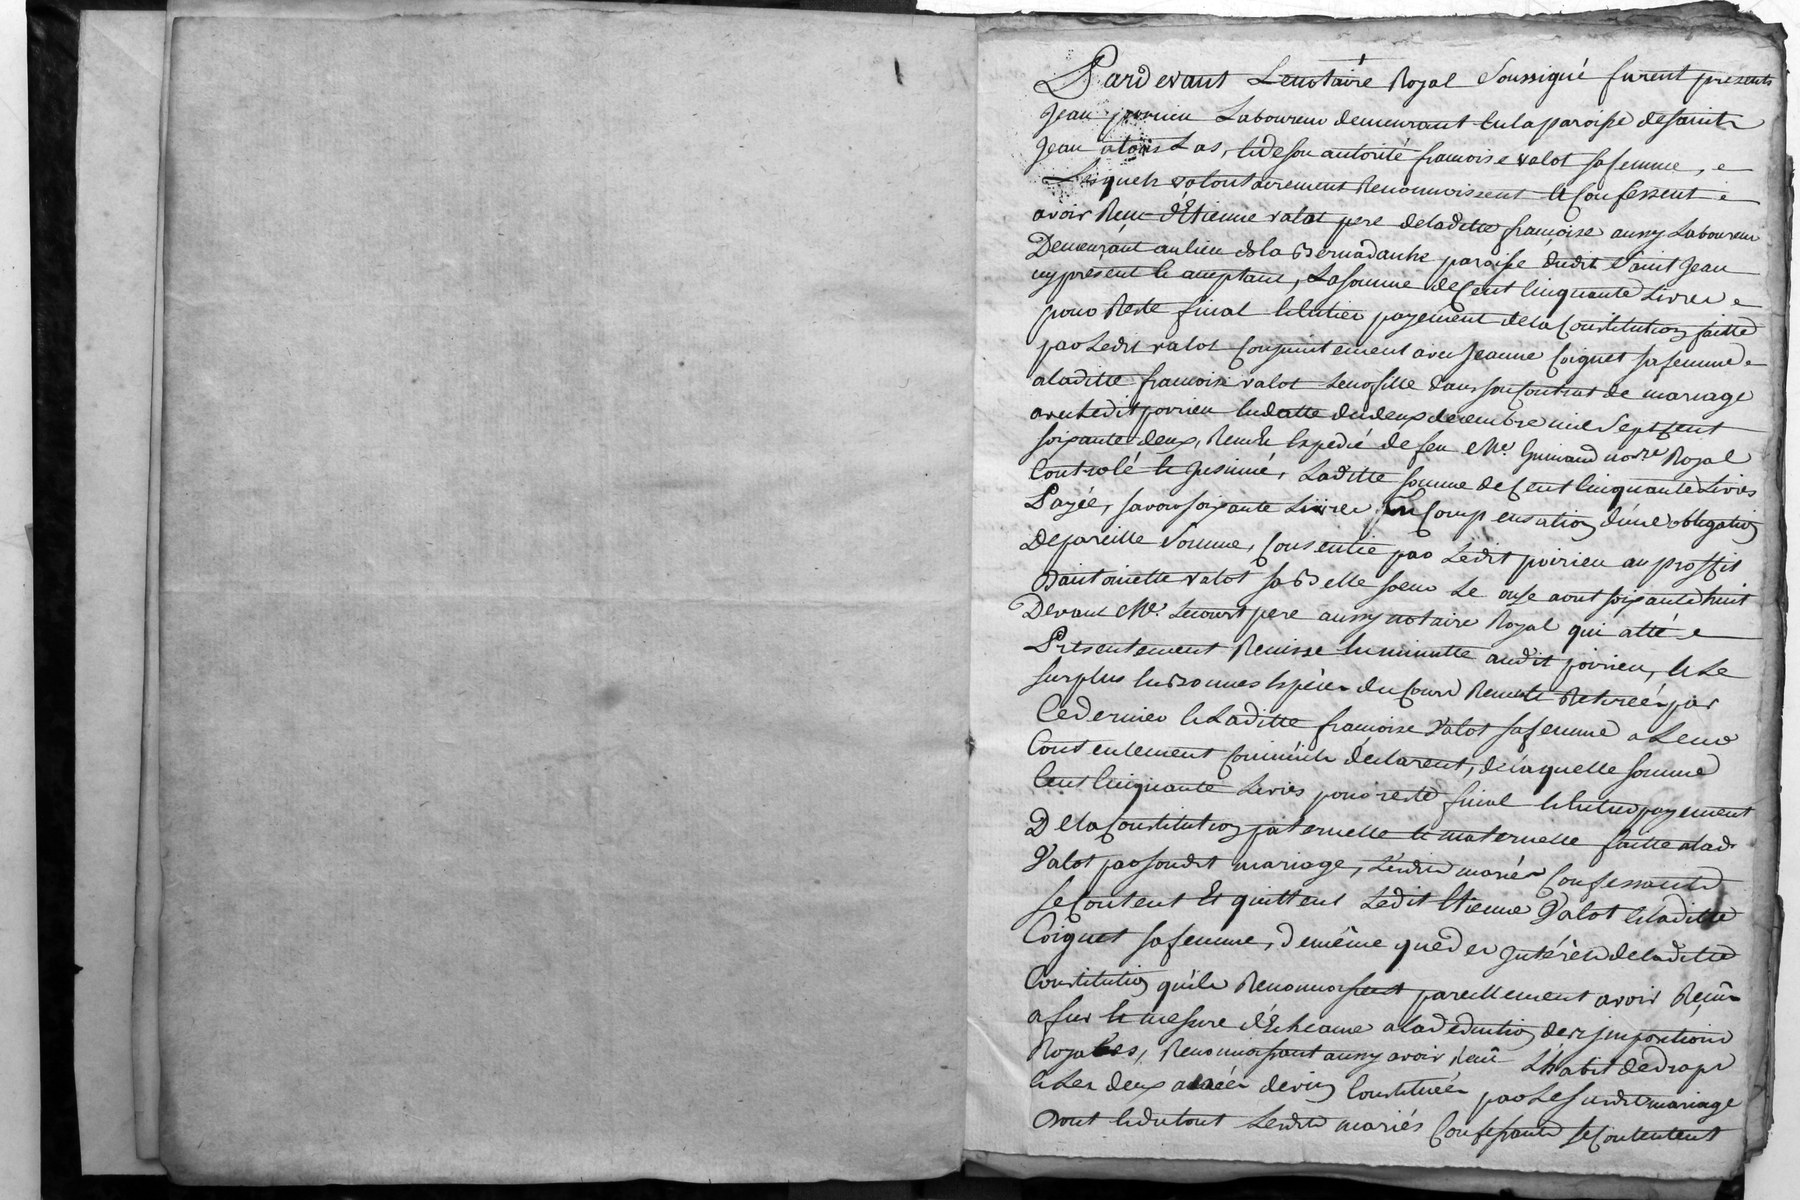 Pardevant Lenotaire Royal Soussigné furent presents
Jean poirieu Laboureur demeurant en la paroisse de saint
Jean Las, et de son autorité francoise valot sa femme,
Lesquels volontairement Reconnoissent et Confessent
avoir Recu d'Etienne valot pere de laditte francoise aussy Laboureur
Demeurant au lieu de la paroisse dudit Saint Jean
icy present et acceptant, La somme de Cent Cinquante Livres
pour Reste final et Entier payement de la Constitution faitte
par Ledit valot Conjointement avec Jeanne Coignet sa femme
a laditte francoise valot Leur fille dans son Contrat de mariage
avec Ledit poirieu en datte du deux decembre mil Sept Cent
soixante deux, Recu et Expedié de feu Me. notre Royal
Controlé et Insinué, Laditte somme de Cent Cinquante Livres
Payée, savoir soixante Livres en Compensation d'une obligation
De pareille Somme, Consentie par Ledit poirieu au proffit
D'antoinette valot sa Belle soeur Le onze aout soixante huit
Devant Me. Lecourt pere aussy notaire Royal qui a été
Presentement Remise en minutte audit poirieu, et Le
surplus en Bonnes Especes du Cours Recu et Retirée par
Ce dernier et Laditte francoise Valot sa femme a Leur
Contentement Comme ils declarent, de laquelle somme
Cent Cinquante Livres pour reste final et Entier payement
De la Constitution paternelle et maternelle faitte a lad.
Valot par sondit mariage, Lesdits mariés Confessants
se Content et quittent Ledit Etienne Valot et laditte
Coignet sa femme, de même que des Intérêts de laditte
Constitution qu'ils Reconnoissent pareillement avoir Reçû
a fur et mesure d'Echeance a la deduction des impositions
Royales, Reconnoissant aussy avoir reçu L'habit de drap
et Les deux anées de vin Constituées par Le susdit mariage
Dont et du tout Lesdits mariés Confessants se Contentent